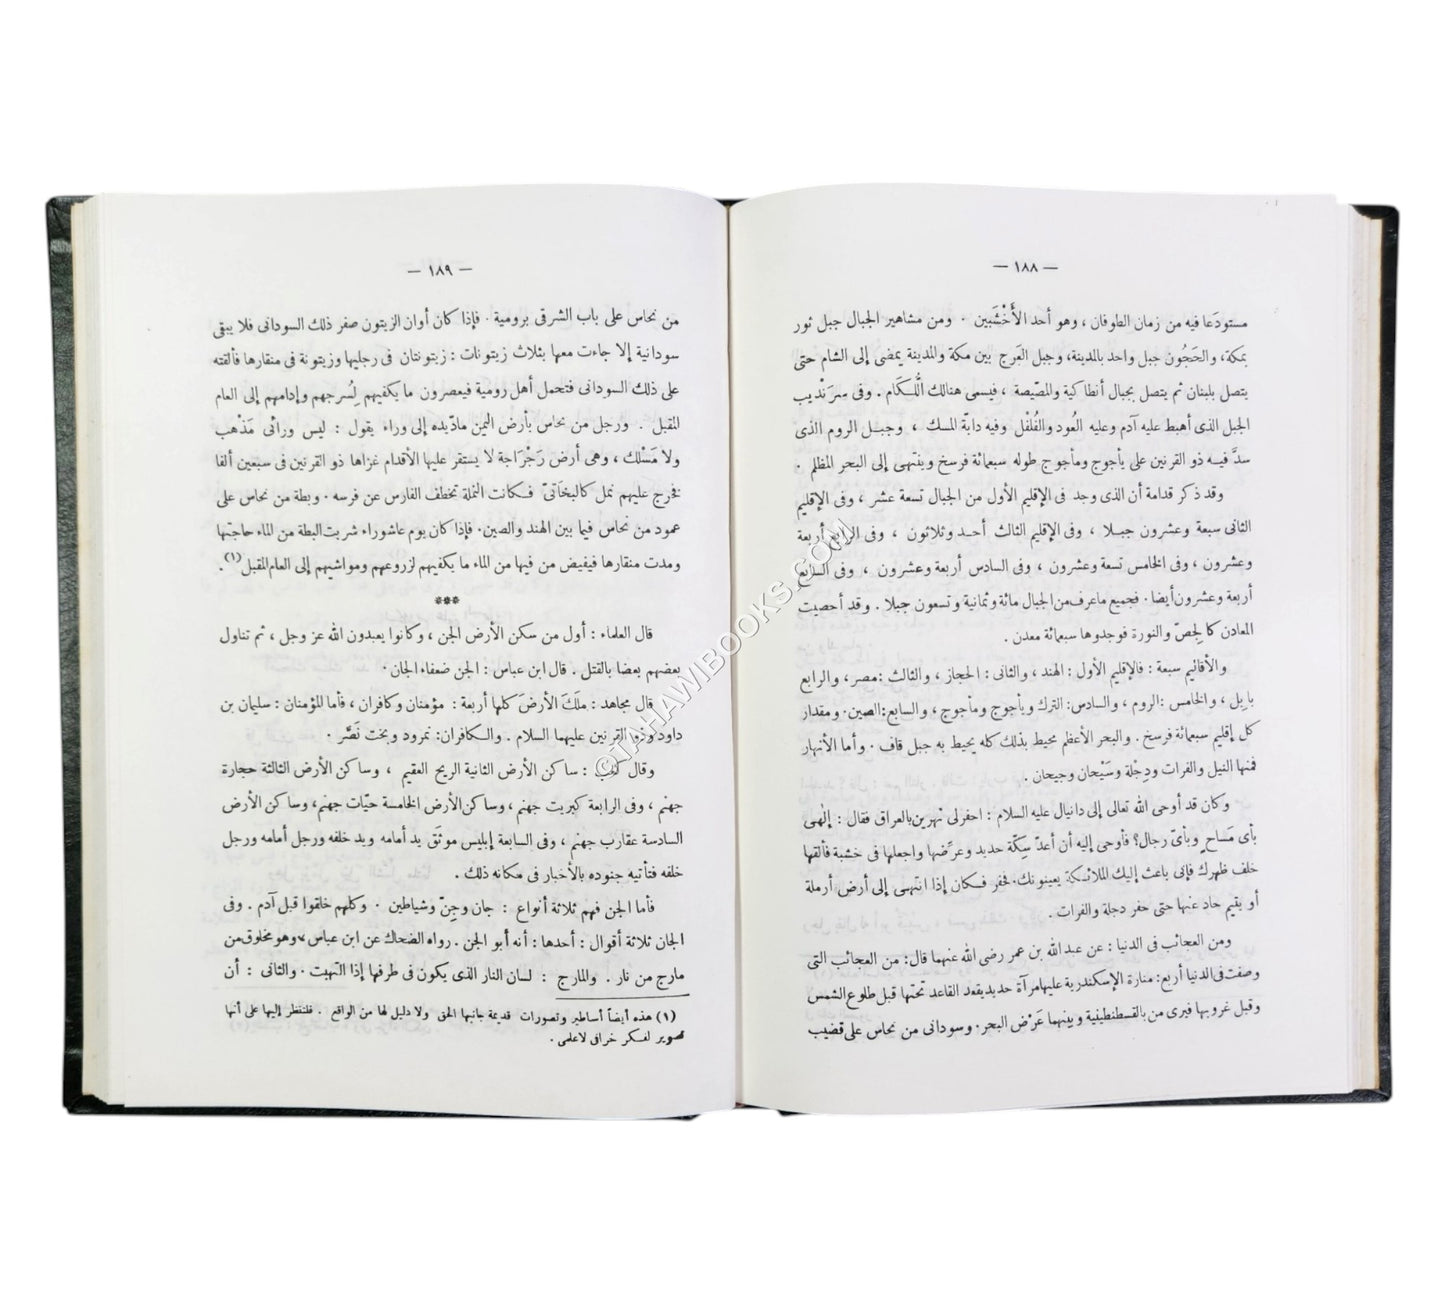 — ١٨٨ —
مستودَعا فيه من زمان الطوفان ، وهو أحد الأَخْشَبين . ومن مشاهير الجبال جبل ثور
بمكة، والحَجُون جبل واحد بالمدينة، وجبل العَرج بين مكة والمدينة يمضى إلى الشام حتى
يتصل بلبنان ثم يتصل بجبال أنطاكية والمصّيصة ، فيسمى هنالك اللُّكام . وفى سِرَنْديب
الجبل الذى أهبط عليه آدم وعليه العُود والفُلفُل وفيه دابّة المسك ، وجبل الروم الذى
سدَّ فيه ذو القرنين على يأجوج ومأجوج طوله سبعمائة فرسخ وينتهى إلى البحر المظلم .
وقد ذكر قدامة أن الذى وجد فى الإقليم الأول من الجبال تسعة عشر ، وفى الإقليم
الثانى سبعة وعشرون جبلا ، وفى الإقليم الثالث أحد وثلاثون ، وفى الرابع أربعة
وعشرون ، وفى الخامس تسعة وعشرون ، وفى السادس أربعة وعشرون ، وفى السابع
أربعة وعشرون أيضا . فجميع ما عرف من الجبال مائة وثمانية وتسعون جبلا . وقد أحصيت
المعادن كالجِصّ والنورة فوجدوها سبعمائة معدن .
والأقاليم سبعة : فالإقليم الأول : الهند، والثانى : الحجاز ، والثالث :مصر، والرابع
بابِل ، والخامس :الروم ، والسادس: الترك ويأجوج ومأجوج ، والسابع:الصين. ومقدار
كل إقليم سبعمائة فرسخ . والبحر الأعظم محيط بذلك كله يحيط به جبل قاف . وأما الأنهار
فمنها النيل والفرات ودِجْلة وسَيْحان وجيحان .
وكان قد أوحى الله تعالى إلى دانيال عليه السلام : احفر لى نهرين بالعراق فقال : إلٰهى
بأى مَسَاحٍ وبأىّ رجال؟ فأوحى إليه أن أعدّ سِكّة حديد وعرِّضها واجعلها فى خشبة فألقها
خلف ظهرك فإنى باعث إليك الملائكة يعينونك. فحفر فكان إذا انتهى إلى أرض أرملة
أو يقيم حاد عنها حتى حفر دجلة والفرات .
ومن العجائب فى الدنيا : عن عبد الله بن عمر رضى الله عنهما قال: من العجائب التى
وصفت فى الدنيا أربع: منارة الإسكندرية عليها مرآة حديد يقعد القاعد تحتها قبل طلوع الشمس
وقبل غروبها فيرى من بالقسطنطينية وبينهما عَرْض البحر. وسودانى من نحاس على قضيب
— ١٨٩ —
من نحاس على باب الشرقى برومية . فإذا كان أوان الزيتون صفر ذلك السودانى فلا يبقى
سودانية إلا جاءت معها بثلاث زيتونات : زيتونتان فى رجليها وزيتونة فى منقارها فألقته
على ذلك السودانى فتحمل أهل رومية فيعصرون ما يكفيهم لِسُرجهم وإدامهم إلى العام
المقبل . ورجل من نحاس بأرض اليمن مادّ يده إلى وراء يقول : ليس ورائى مَذْهب
ولا مَسْلك ، وهى أرض رَجْرَاجة لا يستقر عليها الأقدام غزاها ذو القرنين فى سبعين ألفا
فخرج عليهم نمل كالبخَاتىّ فكانت النملة تخطف الفارس عن فرسه . وبطة من نحاس على
عمود من نحاس فيما بين الهند والصين. فإذا كان يوم عاشوراء شربت البطة من الماء حاجتها
ومدت منقارها فيفيض من فيها من الماء ما يكفيهم لزروعهم ومواشيهم إلى العام المقبل (١) .
***
قال العلماء : أول من سكن الأرض الجن ، وكانوا يعبدون الله عز وجل ، ثم تناول
بعضهم بعضا بالقتل . قال ابن عباس : الجن ضعفاء الجان .
قال مجاهد : ملَكَ الأرضَ كلها أربعة : مؤمنان وكافران ، فأما المؤمنان : سليمان بن
داود وذو القرنين عليهما السلام . والكافران: نمرود وبخت نَصَّر .
وقال كعب : ساكن الأرض الثانية الريح العقيم ، وساكن الأرض الثالثة حجارة
جهنم ، وفى الرابعة كبريت جهنم ، وساكن الأرض الخامسة حيّات جهنم، وساكن الأرض
السادسة عقارب جهنم ، وفى السابعة إبليس موثَق يد أمامه ويد خلفه ورجل أمامه ورجل
خلفه فتأتيه جنوده بالأخبار فى مكانه ذلك .
فأما الجن فهم ثلاثة أنواع : جان وجِنّ وشياطين . وكلهم خلقوا قبل آدم . وفى
الجان ثلاثة أقوال : أحدها : أنه أبو الجن . رواه الضحاك عن ابن عباس ، وهو مخلوق من
مارج من نار . والمارج : لسان النار الذى يكون فى طرفها إذا التهبت . والثانى : أن
(١) هذه أيضاً أساطير وتصورات قديمة جانبها الحق ولا دليل لها من الواقع . فلتنظر إليها على أنها
تصوير لفكر خرافى لاعلمى .
©TAHAWIBOOKS.COM